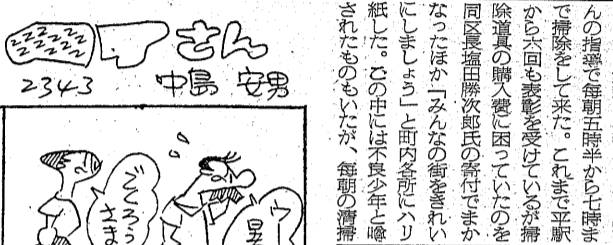 んの指導で毎朝五時半から七時ま
で掃除をして来た。これまで平駅
から六回も表彰を受けているが掃
除道具の購入費に困っていたのを
同区長塩田勝次郎氏の寄付でまか
なったほか「みんなの街をきれい
にしましょう」と町内各所にハリ
紙した。この中には不良少年と噂
されたものもいたが、毎朝の清掃
さん
2343
中島 安男
ごくろう
さま